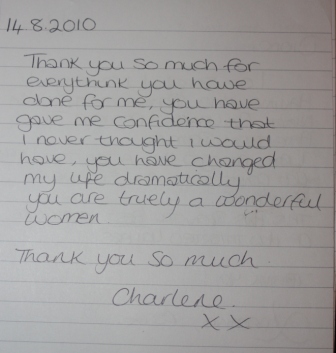 14.8.2010
Thank you so much for
everythink you have
done for me, you have
gave me confidence that
I never thought I would
have, you have changed
my life dramatically
you are truely a wonderful
women
Thank you so much
Charlene.
x x